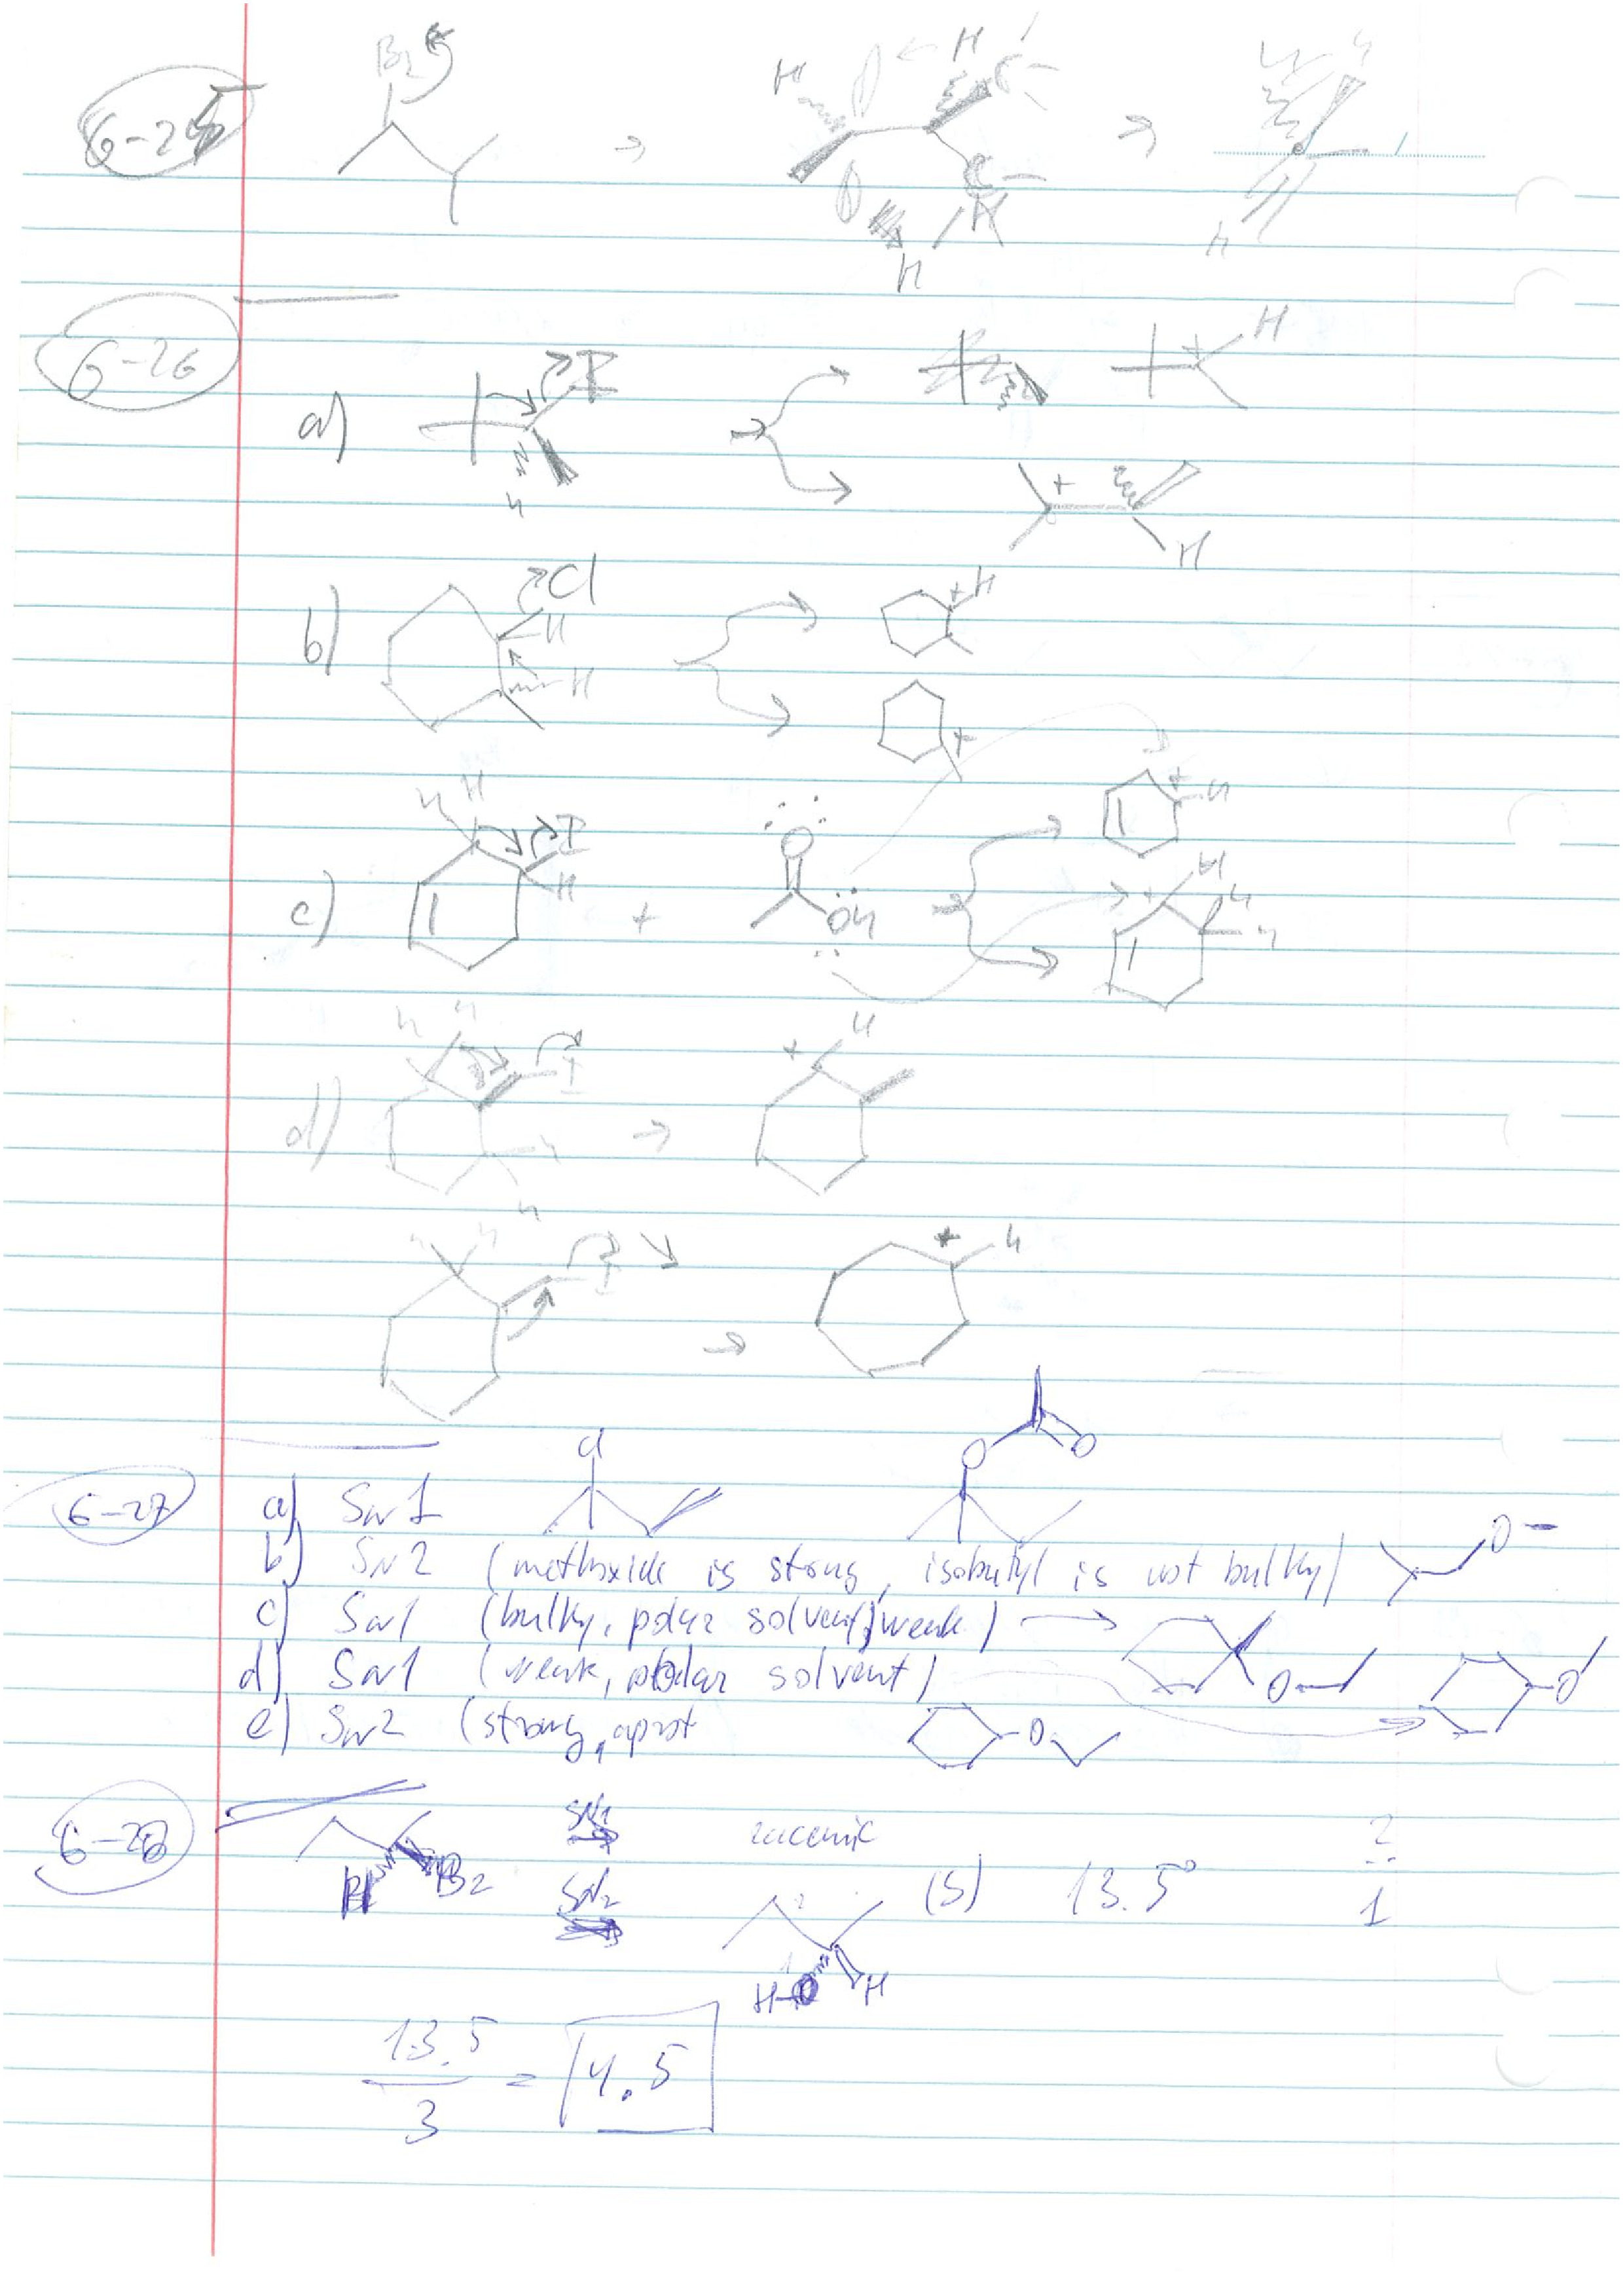 6-25
Br
H
H
C
C
H
H
H
6-26
a)
I
H
+
H
+
H
b)
Cl
H
H
+
H
+
c)
H
H
I
H
+
O
OH
+
H
+
H
H
H
d)
H
H
I
H
H
+
H
H
H
I
+
H
6-27
a) SN1
Cl
O
O
b) SN2 (methoxide is strong, isobutyl is not bulky) O−
c) SN1 (bulky, polar solvent, weak)
O
d) SN1 (weak, polar solvent)
O
e) SN2 (strong, aprot
O
6-28
H
Br
SN1
racemic
2
SN2
(S) 13.5°
1
HO
H
13.5
3
= 4.5